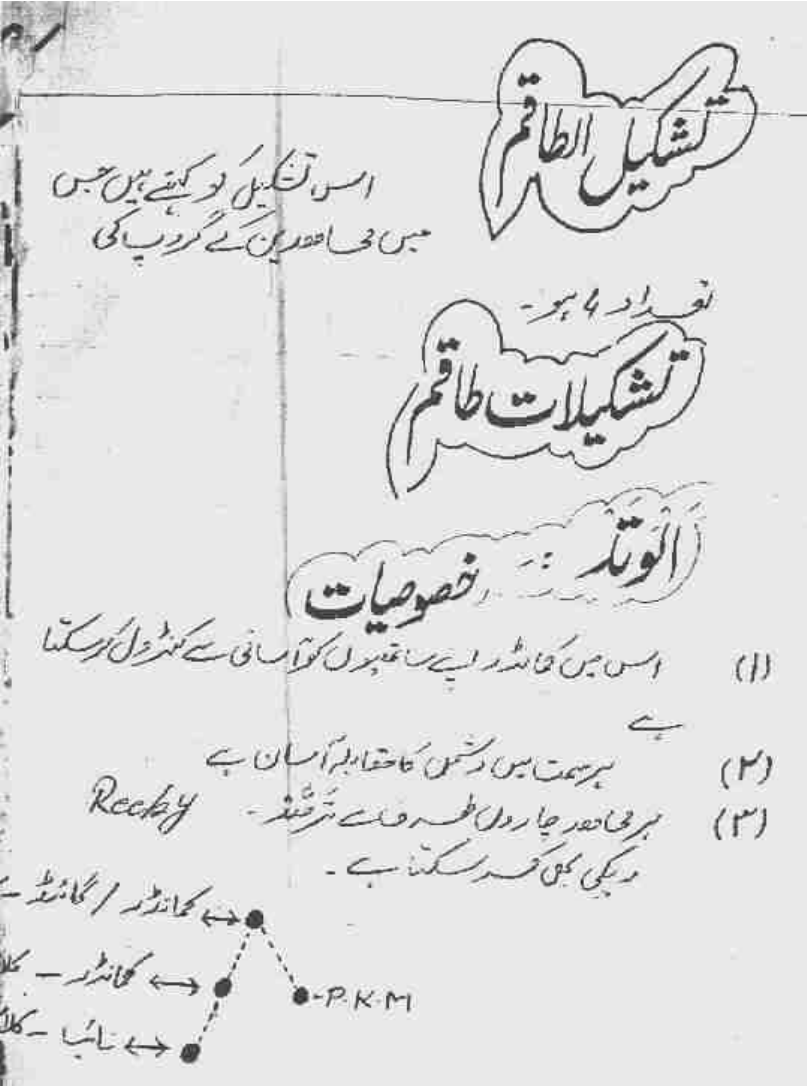 تشکیل الطاقم
اس تشکیل کو کہتے ہیں جس
میں مجاھدین کے گروپ کی
تعداد 4 ہو۔
تشکیلات طاقم
الْوَتَدْ :- خصوصیات
(۱) اس میں کمانڈر اپنے ساتھیوں کو آسانی سے کنٹرول کر سکتا
ہے
(۲) ہر سمت میں دشمن کا مقابلہ آسان ہے
(۳) ہر مجاھد چاروں طرف سے Recky
ریکی بھی کر سکتا ہے۔
کمانڈر / گائیڈ -
کمانڈر -
-P.K.M
نائب -